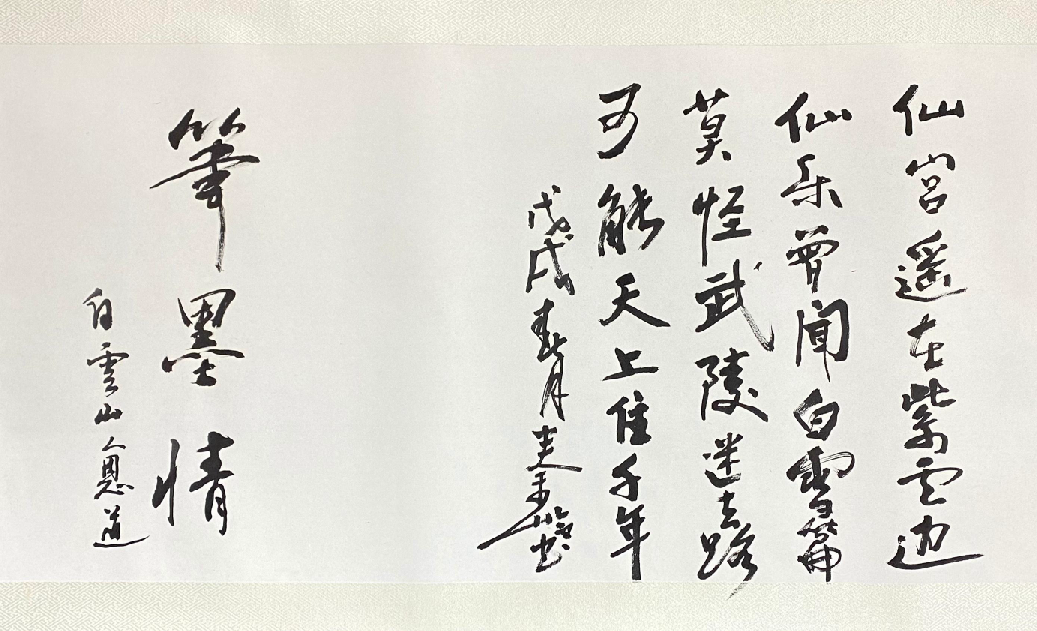 仙宫遥在紫云边
仙乐曾闻白雪篇
莫怪武陵迷去路
可能天上住千年
戊戌春月
筆墨情
白雲山人愚道